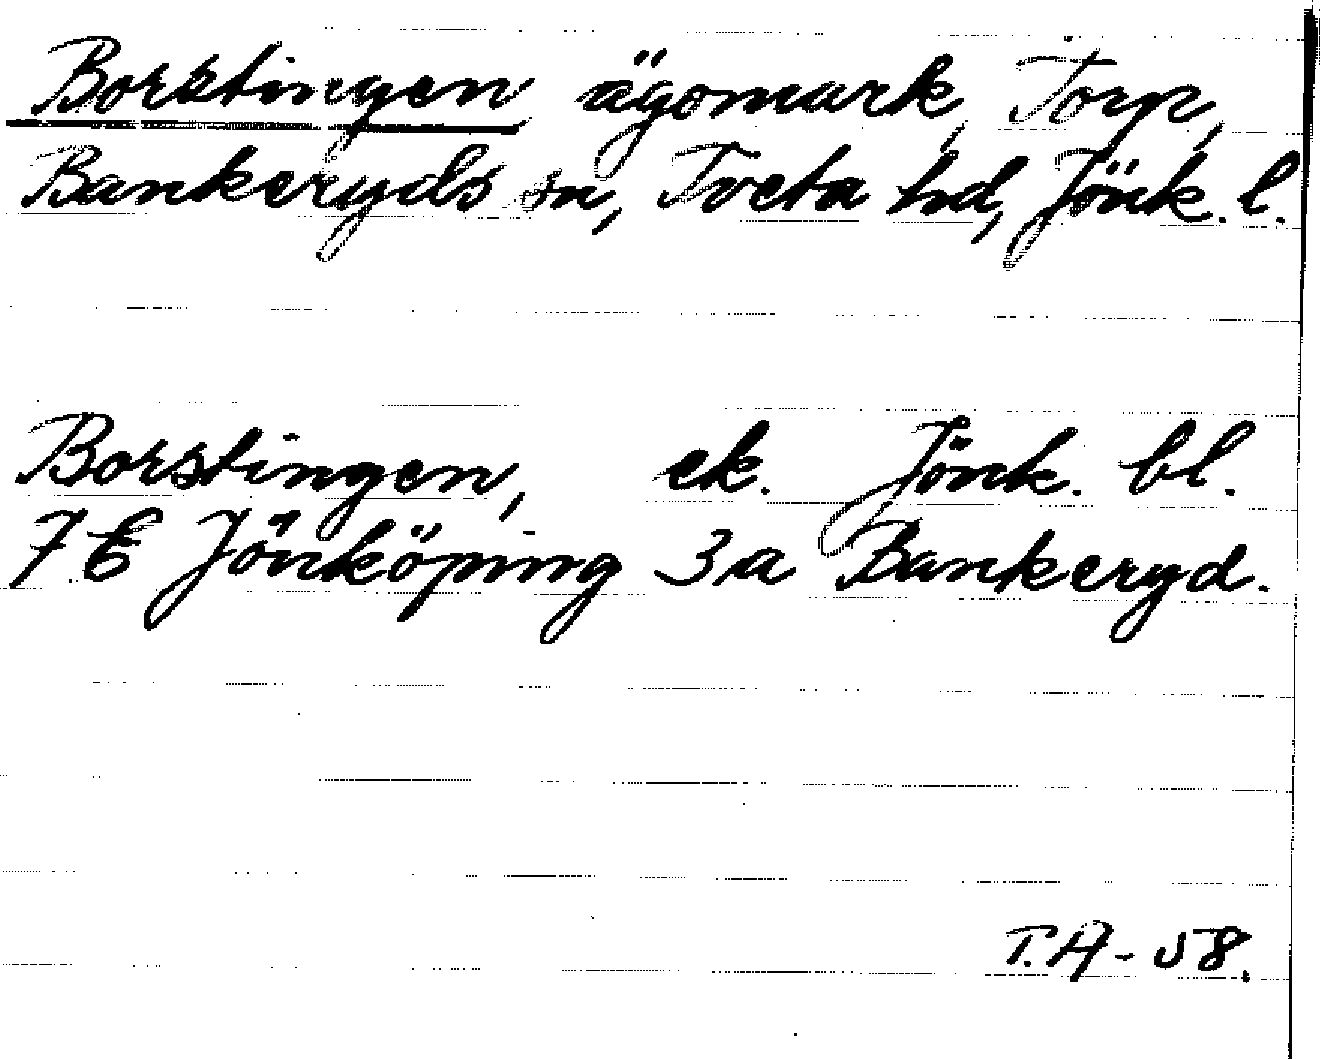 Borstingen ägomark, Torp,
Bankeryds sn, Tveta hd, Jönk. l.
Borstingen, ek. Jönk. bl.
7 E Jönköping 3 a Bankeryd.
T.A - 58.